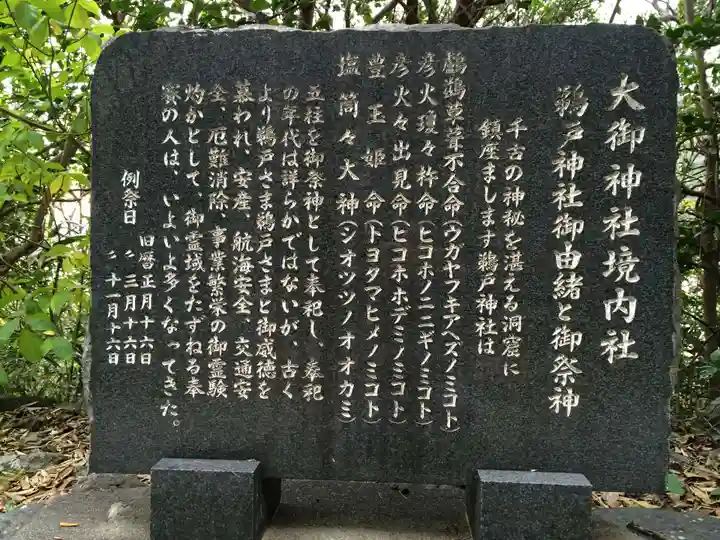 大御神社境内社
鵜戸神社御由緒と御祭神
千古の神秘を湛える洞窟に
鎮座まします鵜戸神社は
鸕鷀草葺不合命(ウガヤフキアヘズノミコト)
彦火瓊々杵命(ヒコホノニニギノミコト)
彦火々出見命(ヒコホホデミノミコト)
豊玉姫命(トヨタマヒメノミコト)
塩筒々大神(シオツツノオオカミ)
五柱を御祭神として奉祀し、奉祀
の年代は詳らかではないが、古く
より鵜戸さま鵜戸さまと御威徳を
慕われ、安産、航海安全、交通安
全、厄難消除、事業繁栄の御霊験
灼かとして、御霊域をたずねる奉
賽の人は、いよいよ多くなってきた。
例祭日 旧暦正月十六日
〃三月十六日
〃十一月十六日